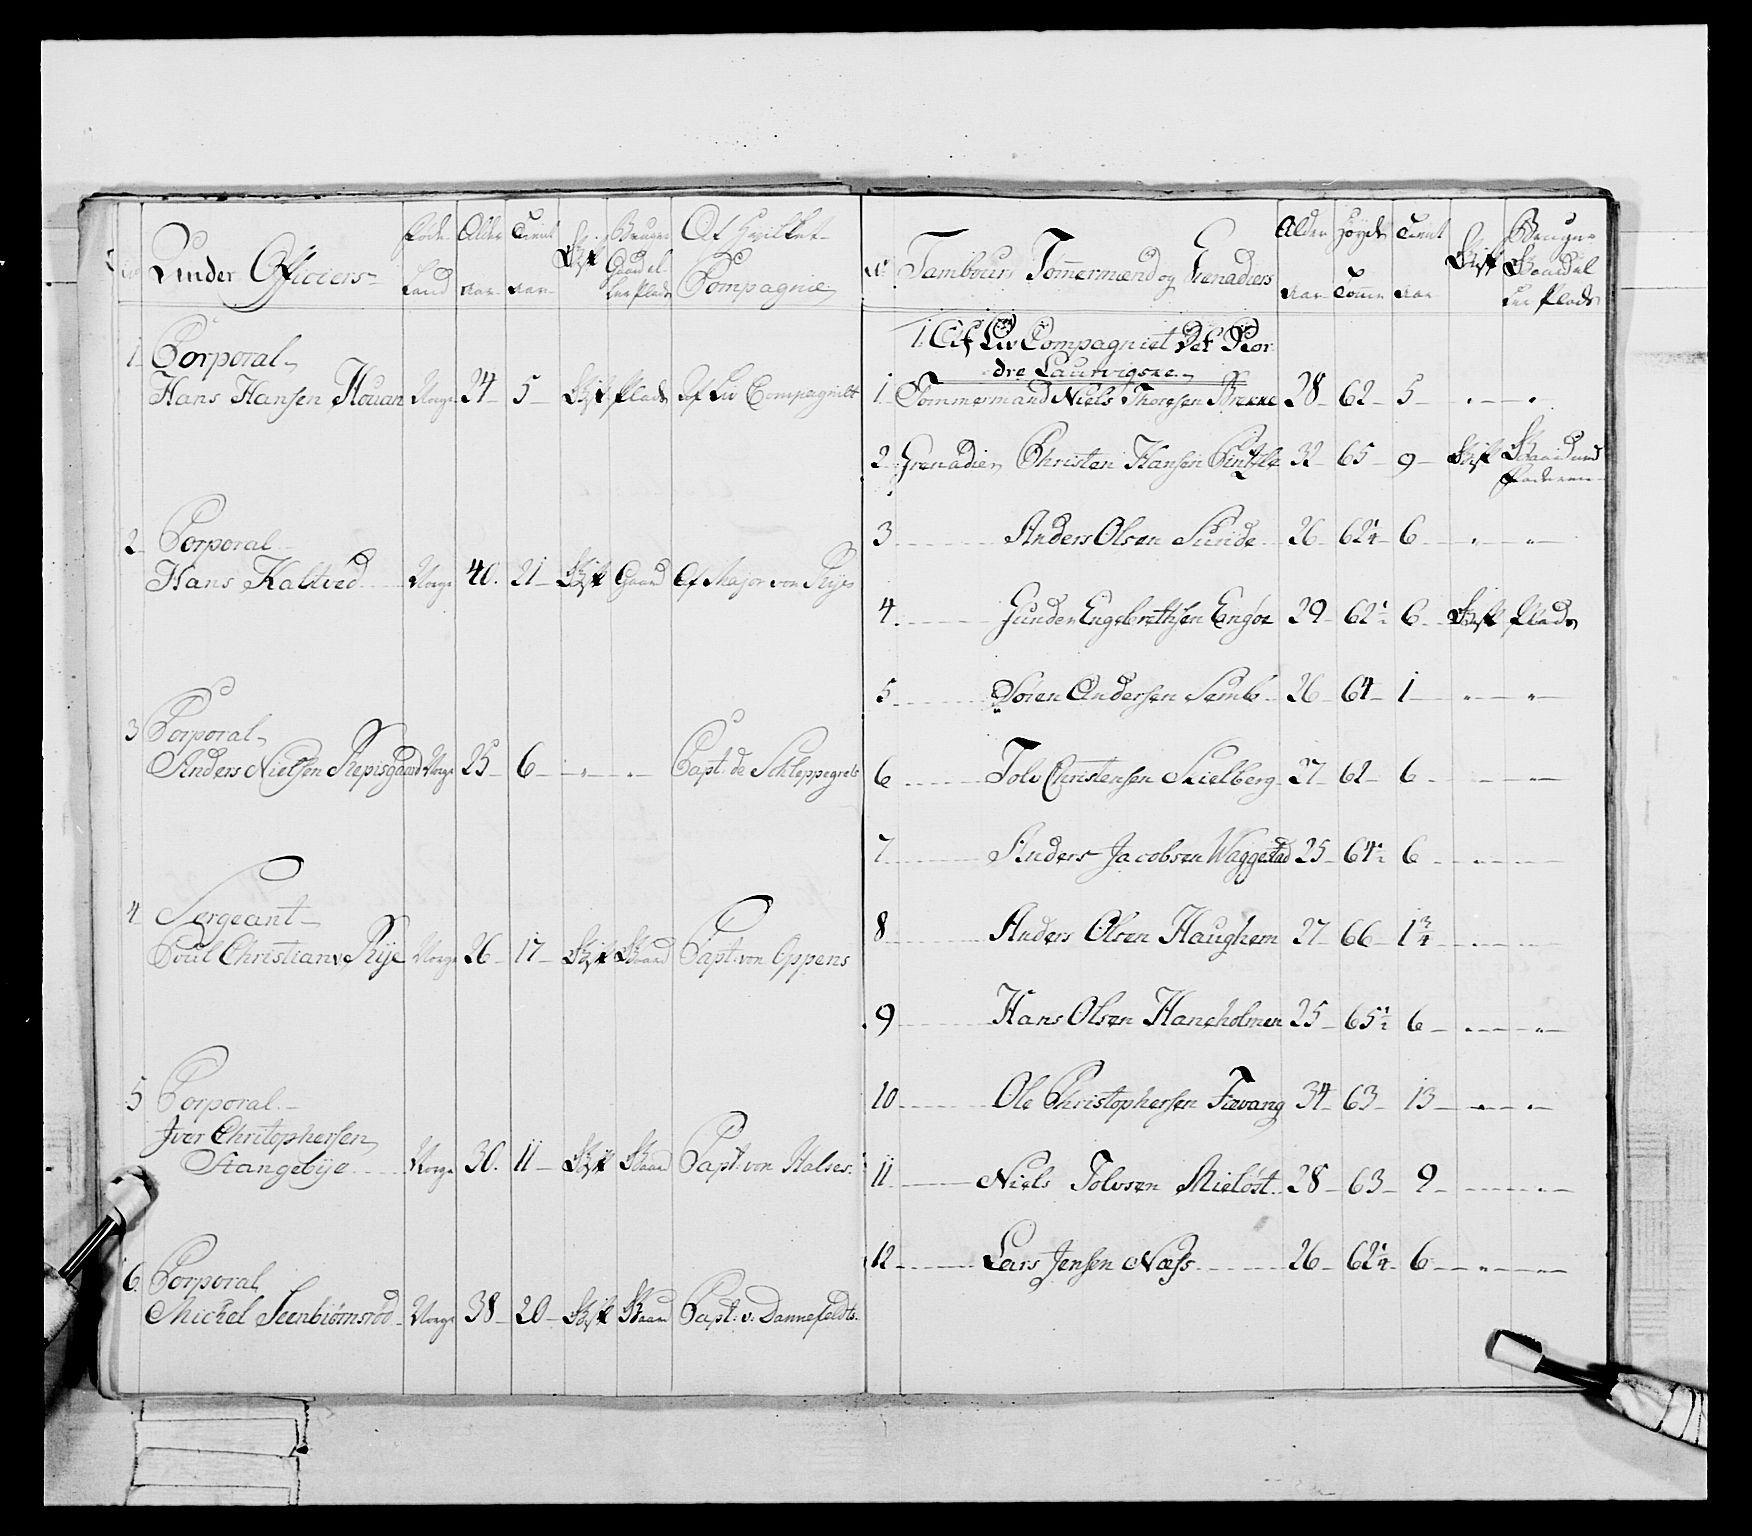 Under Officiers
Føde Land
Alder aar
Tient aar
Gift
Bruger Gaard eller Plads
Af hvilket Compagnie
1 Corporal
Hans Hansen Houan Norge 24 5 Gift Plads Af Liv Compagniet
2 Corporal
Hans Kaltved Norge 40. 21 Gift Gaard Af Major von Rÿe
3 Corporal
Anders Nielsen Repisgaard Norge 25 6 " " Capt: de Schleppegrels
4 Sergeant
Poul Christian v. Rÿe Norge 26 17 Gift Gaard Capt: von Oppens
5 Corporal
Iver Chritophersen
Stangebÿe Norge 30. 11 Gift Gaard Capt: von
6. Corporal
Michel Steenbiørnsrød Norge 38 20 Gift Gaard Capt: v: Dannefeldts.
No Tambour, Tømmermænd og Grenadiers
Alder aar
Høyde Tomer
Tient aar
Gift
Bruger Gaard eller Plads
1. Af Liv Compagniet Det Nor-
dre Laurvigske
1 Tømmermand Niels Thoresen Brekke 28 62 5 " "
2 Grenadier Christen Hansen 32 65 9 Gift Gaard med
Faderen
3 Anders Olsen Sunde 26 62¼ 6 " "
4 Gunder Engebrethsen Engøe 29 62½ 6 Gift Plads
5 Søren Andersen Semb 26 64 1 " "
6 Tolv Christensen Skielberg 27 62 6 " "
7 Anders Jacobsen Waggestad 25 64½ 6 " "
8 Anders Olsen Haughem 27 66 1¾ " "
9 Hans Olsen Haneholmen 25 65½ 6 " "
10 Ole Christophersen Fævang 34 63 13 " "
11 Niels Tolvsen Mieløst 28 63 9 " "
12 Lars Jensen Næss 26 62¼ 6 " "